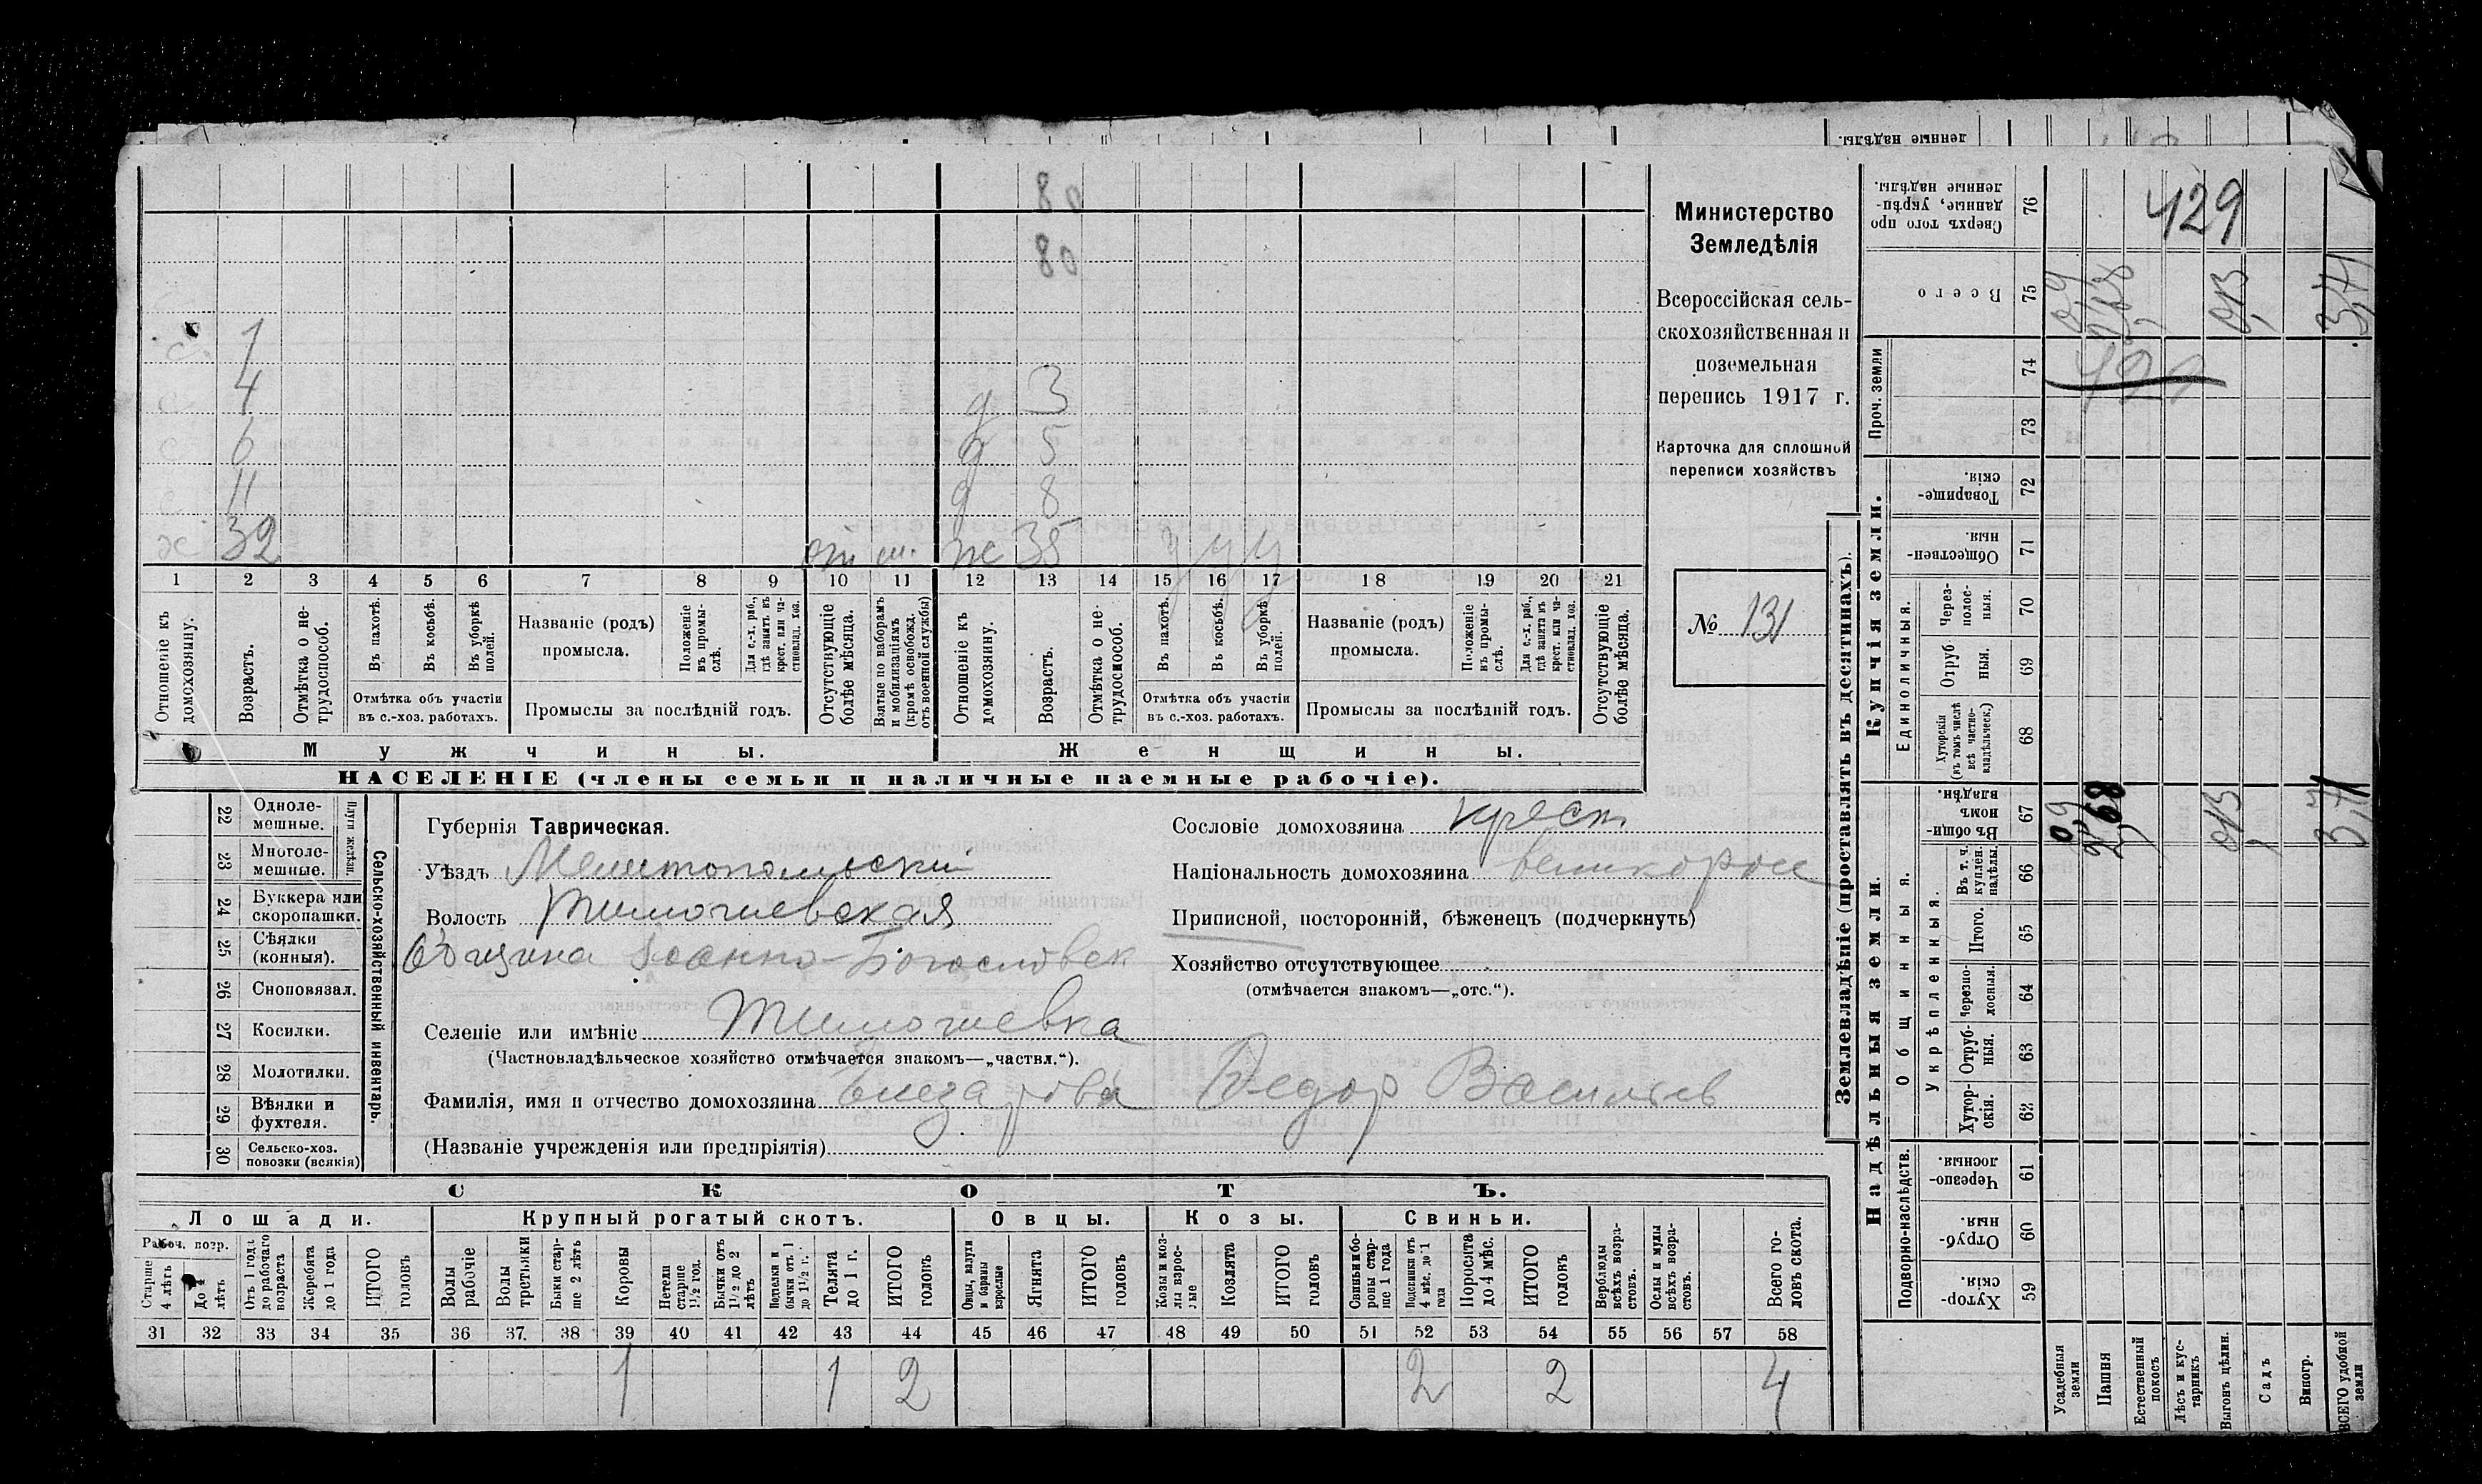 денные надѣлы.
80
80
1
4
д 3
6
д 5
11
д 8
х 32
от м. ж 35 у у у
1 2 3 4 5 6 7 8 9 10 11 12 13 14 15 16 17 18 19 20 21
Отношеніе къ домохозяину.
Возрастъ.
Отмѣтка о нетрудоспособ.
Въ пахотѣ.
Въ косьбѣ.
Въ уборкѣ полей.
Отмѣтка объ участіи
въ с.-хоз. работахъ.
Названіе (родъ)
промысла.
Положеніе въ промыслѣ.
Для с.-х. раб., гдѣ занятъ въ крест. или частновлад. хоз.
Промыслы за послѣдній годъ.
Отсутствующіе болѣе мѣсяца.
Взятые по наборамъ и мобилизаціямъ (кромѣ освобожд. отъ военной службы)
Отношеніе къ домохозяину.
Возрастъ.
Отмѣтка о нетрудоспособ.
Въ пахотѣ.
Въ косьбѣ.
Въ уборкѣ полей.
Отмѣтка объ участіи
въ с.-хоз. работахъ.
Названіе (родъ)
промысла.
Положеніе въ промыслѣ.
Для с.-х. раб., гдѣ занята въ крест. или частновлад. хоз.
Промыслы за послѣдній годъ.
Отсутствующіе болѣе мѣсяца.
Мужчины.
Женщины.
НАСЕЛЕНІЕ (члены семьи и наличные наемные рабочіе).
Министерство
Земледѣлія
Всероссійская сель-
скохозяйственная и
поземельная
перепись 1917 г.
Карточка для сплошной
переписи хозяйствъ
№ 131
22 Одноле-
мешные.
23 Многоле-
мешные.
Плуги желѣзн.
24 Буккера или
скоропашки.
25 Сѣялки
(конныя).
26 Сноповязал.
27 Косилки.
28 Молотилки.
29 Вѣялки и
фухтеля.
30 Сельско-хоз.
повозки (всякія)
Сельско-хозяйственный инвентарь.
Губернія Таврическая.
Уѣздъ Мелитопольскій
Волость Тимошевская
Община Іоанно-Богословск
Селеніе или имѣніе Тимошевка
(Частновладѣльческое хозяйство отмѣчается знакомъ—„частвл.“).
Фамилія, имя и отчество домохозяина Елезарова Ѳедор Васильев
(Названіе учрежденія или предпріятія)
Сословіе домохозяина крест
Національность домохозяина великоросс
Приписной, посторонній, бѣженецъ (подчеркнуть)
Хозяйство отсутствующее
(отмѣчается знакомъ—„отс.“).
СКОТЪ.
Лошади. Крупный рогатый скотъ. Овцы. Козы. Свиньи.
Рабоч. возр.
Старше 4 лѣтъ
До 4 лѣтъ
Отъ 1 года до рабочаго возраста
Жеребята до 1 года
ИТОГО головъ
Волы рабочіе
Волы третьяки
Быки старше 2 лѣтъ
Коровы
Нетели старше 1½ год.
Бычки отъ 1½ до 2 лѣтъ
Подтелки и бычки отъ 1 до 1½ г.
Телята до 1 г.
ИТОГО головъ
Овцы, валухи и бараны взрослые
Ягнята
ИТОГО головъ
Козы и козлы взрослые
Козлята
ИТОГО головъ
Свиньи и боровы старше 1 года
Подсвинки отъ 4 мѣс. до 1 года
Поросята до 4 мѣс.
ИТОГО головъ
Верблюды всѣхъ возрастовъ.
Ослы и мулы всѣхъ возрастовъ.
Всего головъ скота.
31 32 33 34 35 36 37 38 39 40 41 42 43 44 45 46 47 48 49 50 51 52 53 54 55 56 57 58
1 1 2 2 2 4
Землевладѣніе (проставлять въ десятинахъ).
Сверхъ того проданные, укрѣпленные надѣлы. 76
429
Всего 75
0,9
0,13
3,41
Проч. земли 74 73
429
Купчія земли.
Товарищескія. 72
Общественныя. 71
Единоличныя.
Черезполосныя. 70
Отрубныя. 69
Хуторскія (въ томъ числѣ всѣ частновладѣльческ.) 68
Надѣльныя земли.
Общинныя.
Въ общинномъ владѣн. 67
0,9
0,13
3,41
Укрѣпленныя.
Въ т. ч. куплен. надѣлы. 66
Итого. 65
Черезполосныя. 64
Отрубныя. 63
Хуторскія. 62
Подворно-наслѣдств.
Черезполосныя. 61
Отрубныя. 60
Хуторскія. 59
Усадебныя земли
Пашня
Естественный покосъ
Лѣсъ и кустарникъ
Выгонъ цѣлин.
Садъ
Виногр.
ВСЕГО удобной земли